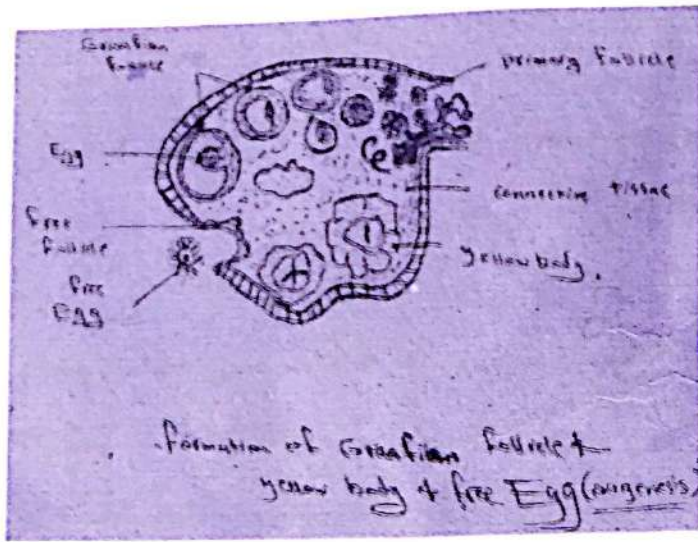 Graafian
primary follicle
Egg
connective tissue
free
follicle
yellow body.
free
Egg
formation of Graafian follicle &
yellow body & free Egg (oogenesis)